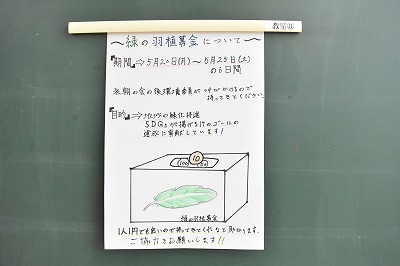 教室
～緑の羽植募金について～
『期間』⇒5月20日(月)～5月25日(土)
の6日間
※朝の会の後環境委員が呼びかけるので
持ってきてください。
『目的』⇒
の緑化推進
SDGsが掲げる17のゴールの
達成に貢献しています!
10
緑の羽植募金
1人1円でも良いので持ってきてくれるとても助かります。
ご協力をお願いします!!